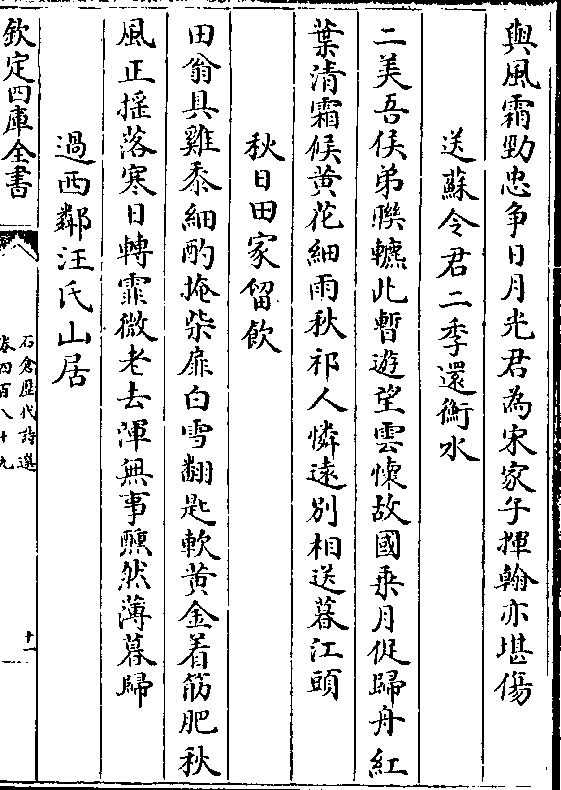 與風霜勁忠争日月光君為宋家子揮翰亦堪傷
送蘇令君二季還衡水
二美吾侯弟聯鑣此暫遊望雲懷故國乗月促歸舟紅
葉清霜候黄花細雨秋祁人憐逺別相送暮江頭
秋日田家留飲
田翁具雞黍細酌掩柴扉白雪翻匙軟黄金着筯肥秋
風正揺落寒日轉霏微老去渾無事醺然薄暮歸
過西鄰汪氏山居
欽定四庫全書
石倉歴代詩選
卷四百八十九
十一